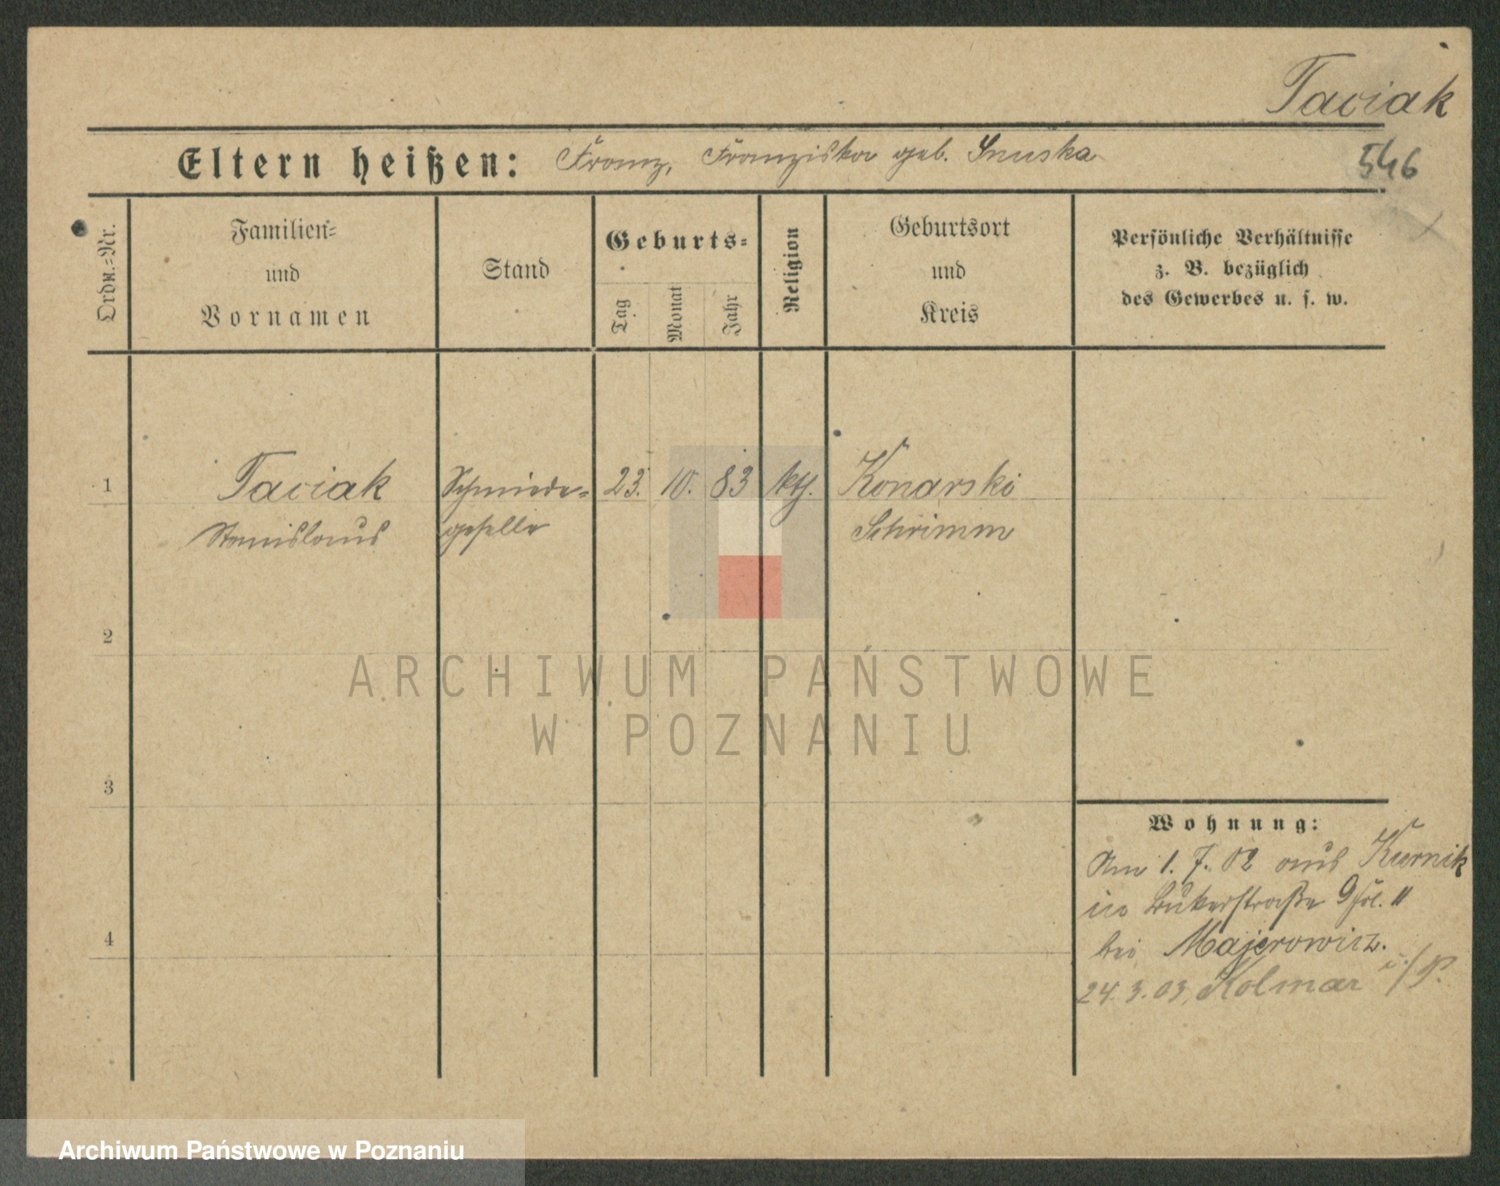 Taciak
Eltern heißen: Franz, Franziska geb. Snuska
546
Ordn.=Nr.
Familien=
und
Vornamen
Stand
Geburts=
Tag
Monat
Jahr
Religion
Geburtsort
und
Kreis
Persönliche Verhältnisse
z. B. bezüglich
des Gewerbes u. s. w.
1
Taciak
Stanislaus
Schmiede=
geselle
23. 10. 83
kth.
Konarski
Schrimm
2
ARCHIWUM PAŃSTWOWE
W POZNANIU
3
Wohnung:
Am 1. 7. 02 aus Kurnik
in Bukerstraße 9 II
bei Majerowicz.
24. 3. 03. Kolmar i./P.
4
Archiwum Państwowe w Poznaniu